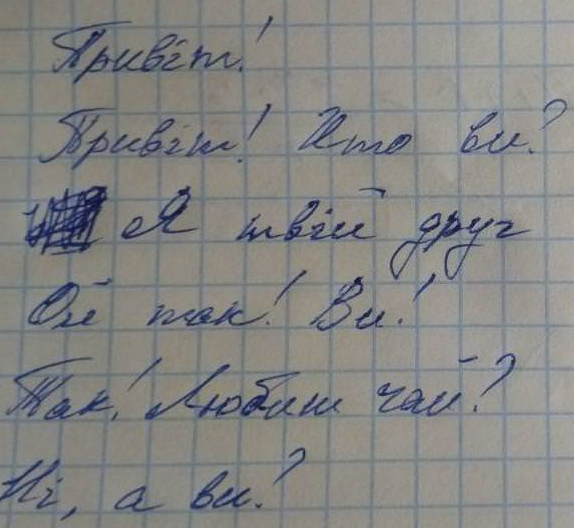 Привіт!
Привіт! Хто ви?
Я твій друг
Ой так! Ви!
Так! Любиш чай?
Ні, а ви?